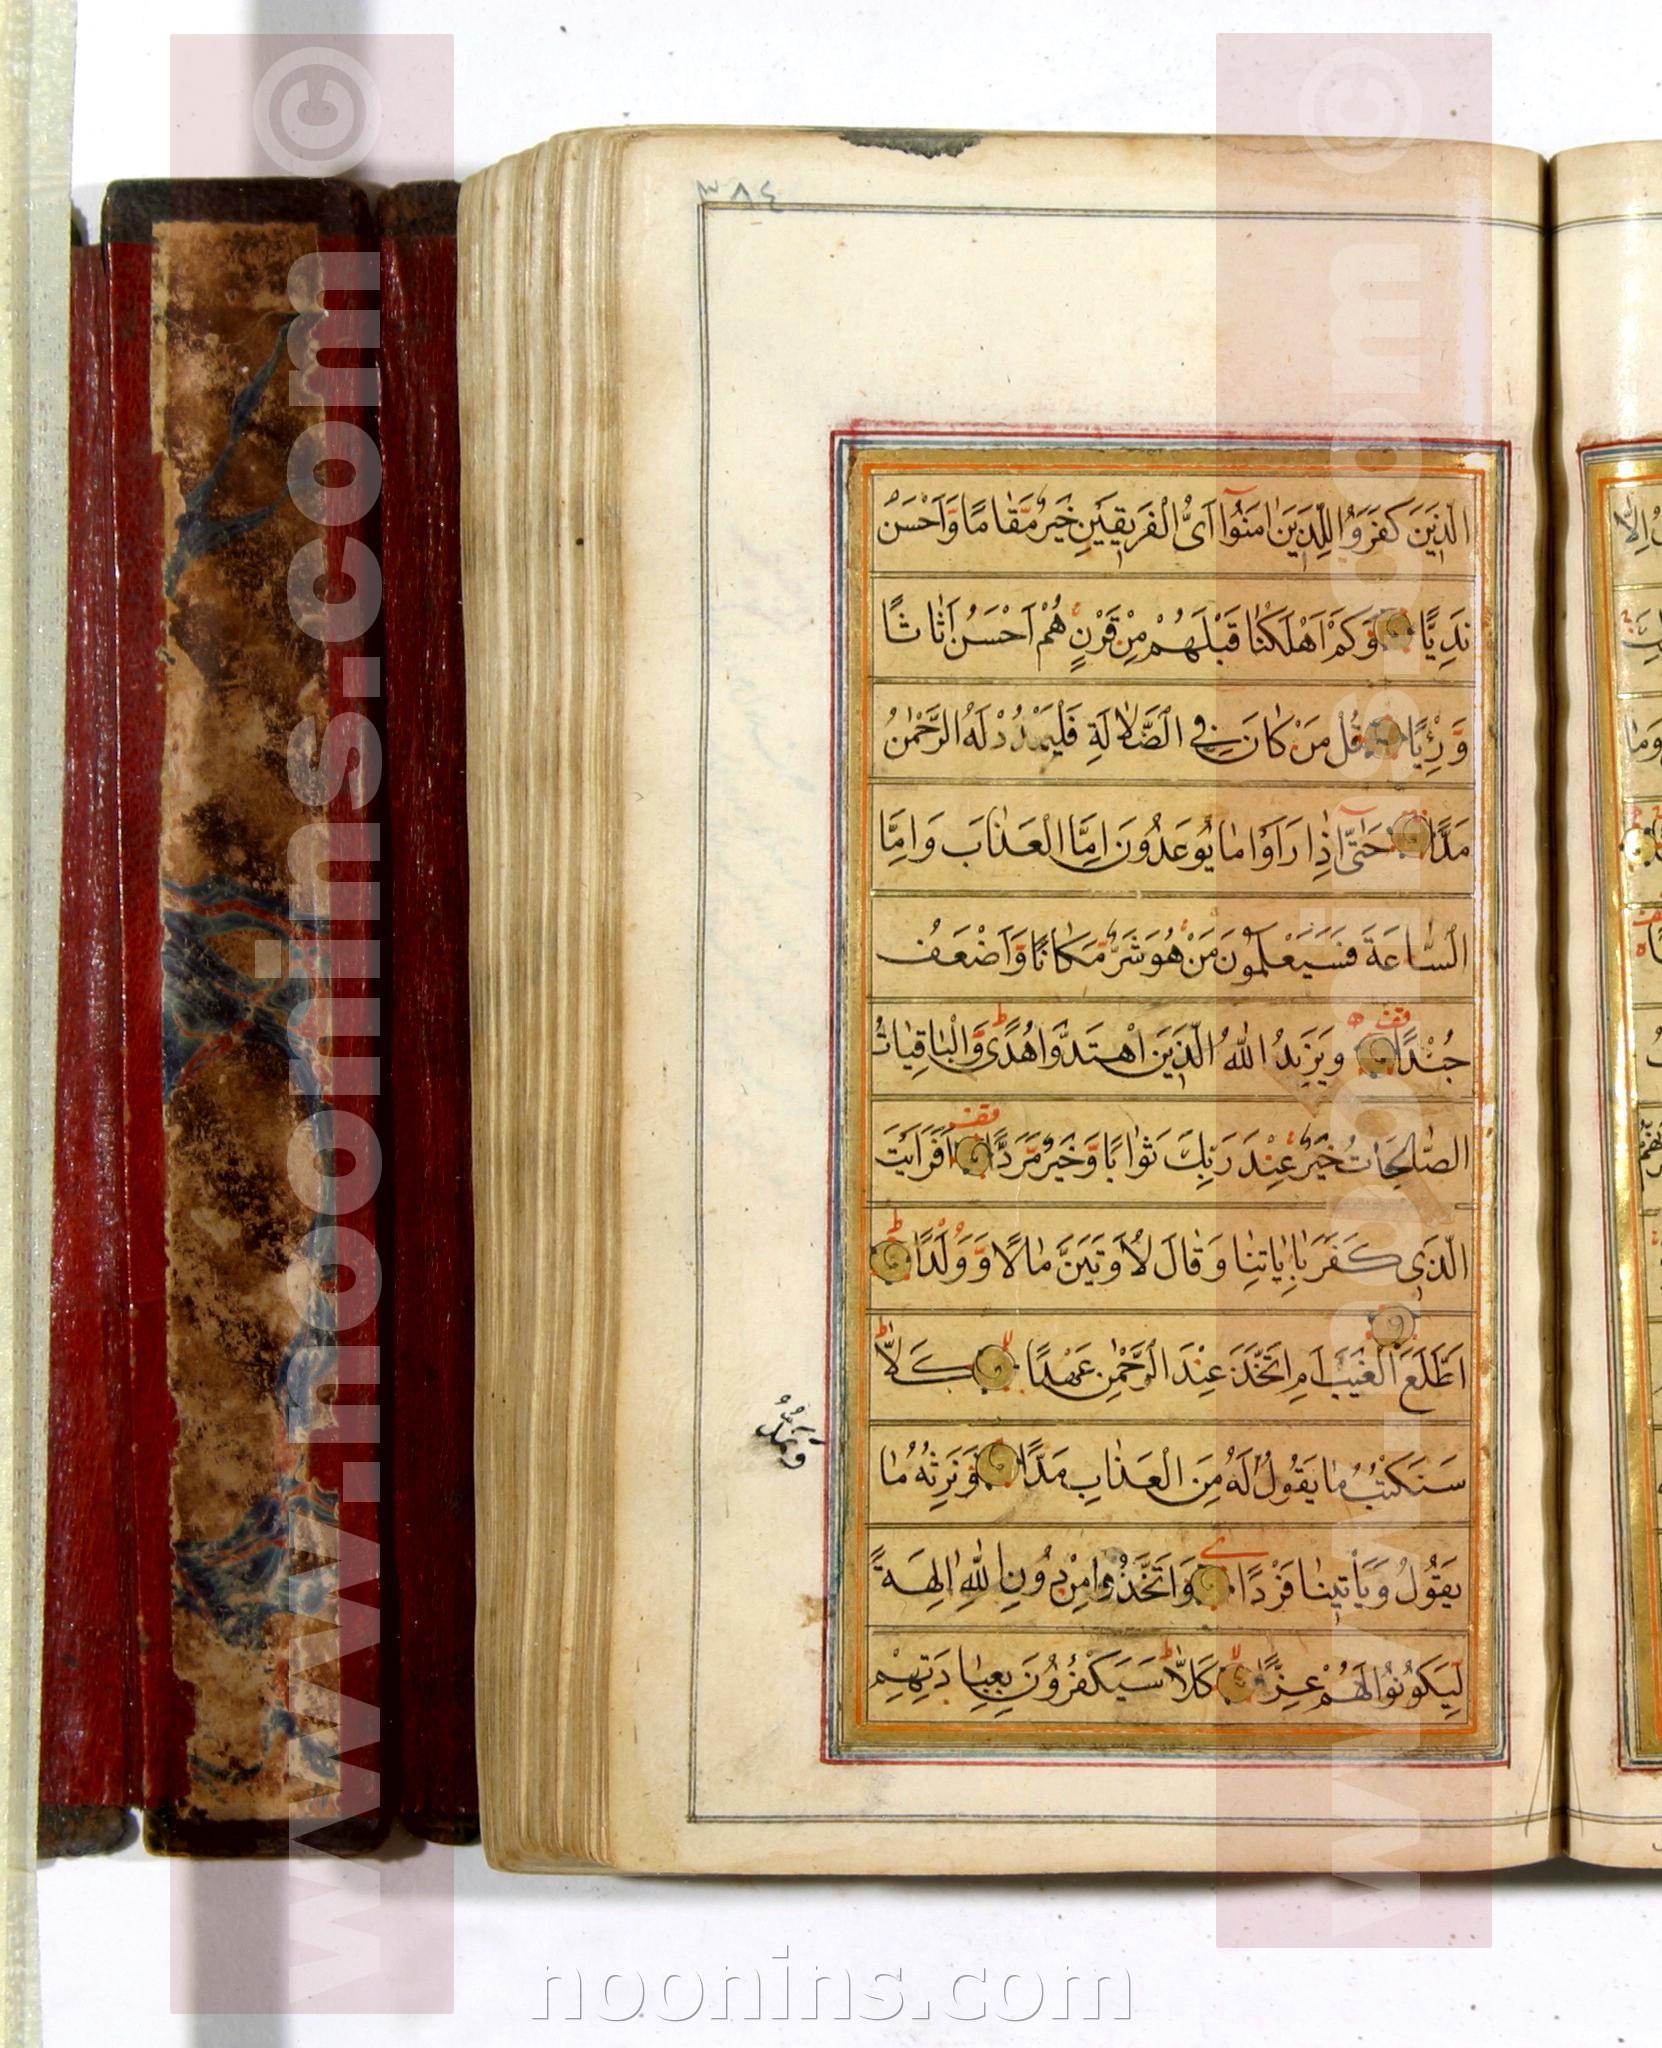 ٣٨٤
الَّذِينَ كَفَرُوا لِلَّذِينَ اٰمَنُوٓا اَىُّ الْفَرِيقَيْنِ خَيْرٌ مَقَامًا وَاَحْسَنُ
نَدِيًّا وَكَمْ اَهْلَكْنَا قَبْلَهُمْ مِنْ قَرْنٍ هُمْ اَحْسَنُ اَثَاثًا
وَرِءْيًا قُلْ مَنْ كَانَ فِي الضَّلَالَةِ فَلْيَمْدُدْ لَهُ الرَّحْمٰنُ
مَدًّا حَتّٰىٓ اِذَا رَاَوْا مَا يُوعَدُونَ اِمَّا الْعَذَابَ وَاِمَّا
السَّاعَةَ فَسَيَعْلَمُونَ مَنْ هُوَ شَرٌّ مَكَانًا وَاَضْعَفُ
جُنْدًا وَيَزِيدُ اللّٰهُ الَّذِينَ اهْتَدَوْا هُدًى وَالْبَاقِيَاتُ
الصَّالِحَاتُ خَيْرٌ عِنْدَ رَبِّكَ ثَوَابًا وَخَيْرٌ مَرَدًّا اَفَرَاَيْتَ
الَّذِي كَفَرَ بِاٰيَاتِنَا وَقَالَ لَاُوتَيَنَّ مَالًا وَوَلَدًا
اَطَّلَعَ الْغَيْبَ اَمِ اتَّخَذَ عِنْدَ الرَّحْمٰنِ عَهْدًا كَلَّا
سَنَكْتُبُ مَا يَقُولُ لَهُ مِنَ الْعَذَابِ مَدًّا وَنَرِثُهُ مَا
وَنَمُدُّ
يَقُولُ وَيَأْتِينَا فَرْدًا وَاتَّخَذُوا مِنْ دُونِ اللّٰهِ اٰلِهَةً
لِيَكُونُوا لَهُمْ عِزًّا كَلَّا سَيَكْفُرُونَ بِعِبَادَتِهِمْ
www.noonins.com ©
www.noonins.com ©
noonins.com